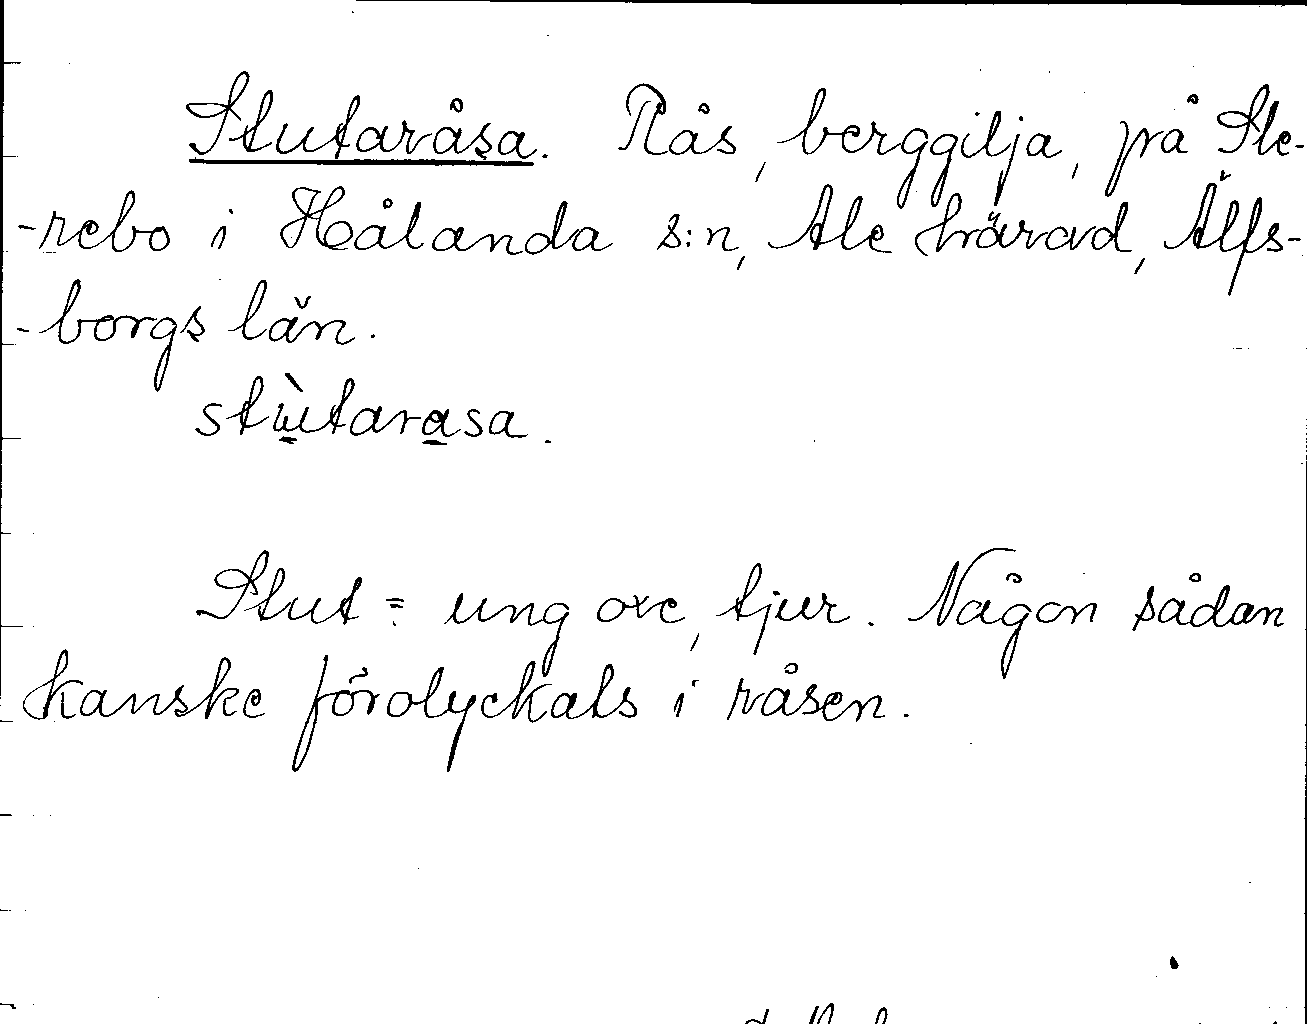 Stutaråsa. Rås, berggilja, på Ste-
-rebo i Hålanda s:n, Ale härad, Älfs-
-borgs län.
stùtarasa.
Stut = ung oxe, tjur. Någon sådan
kanske förolyckats i råsen.